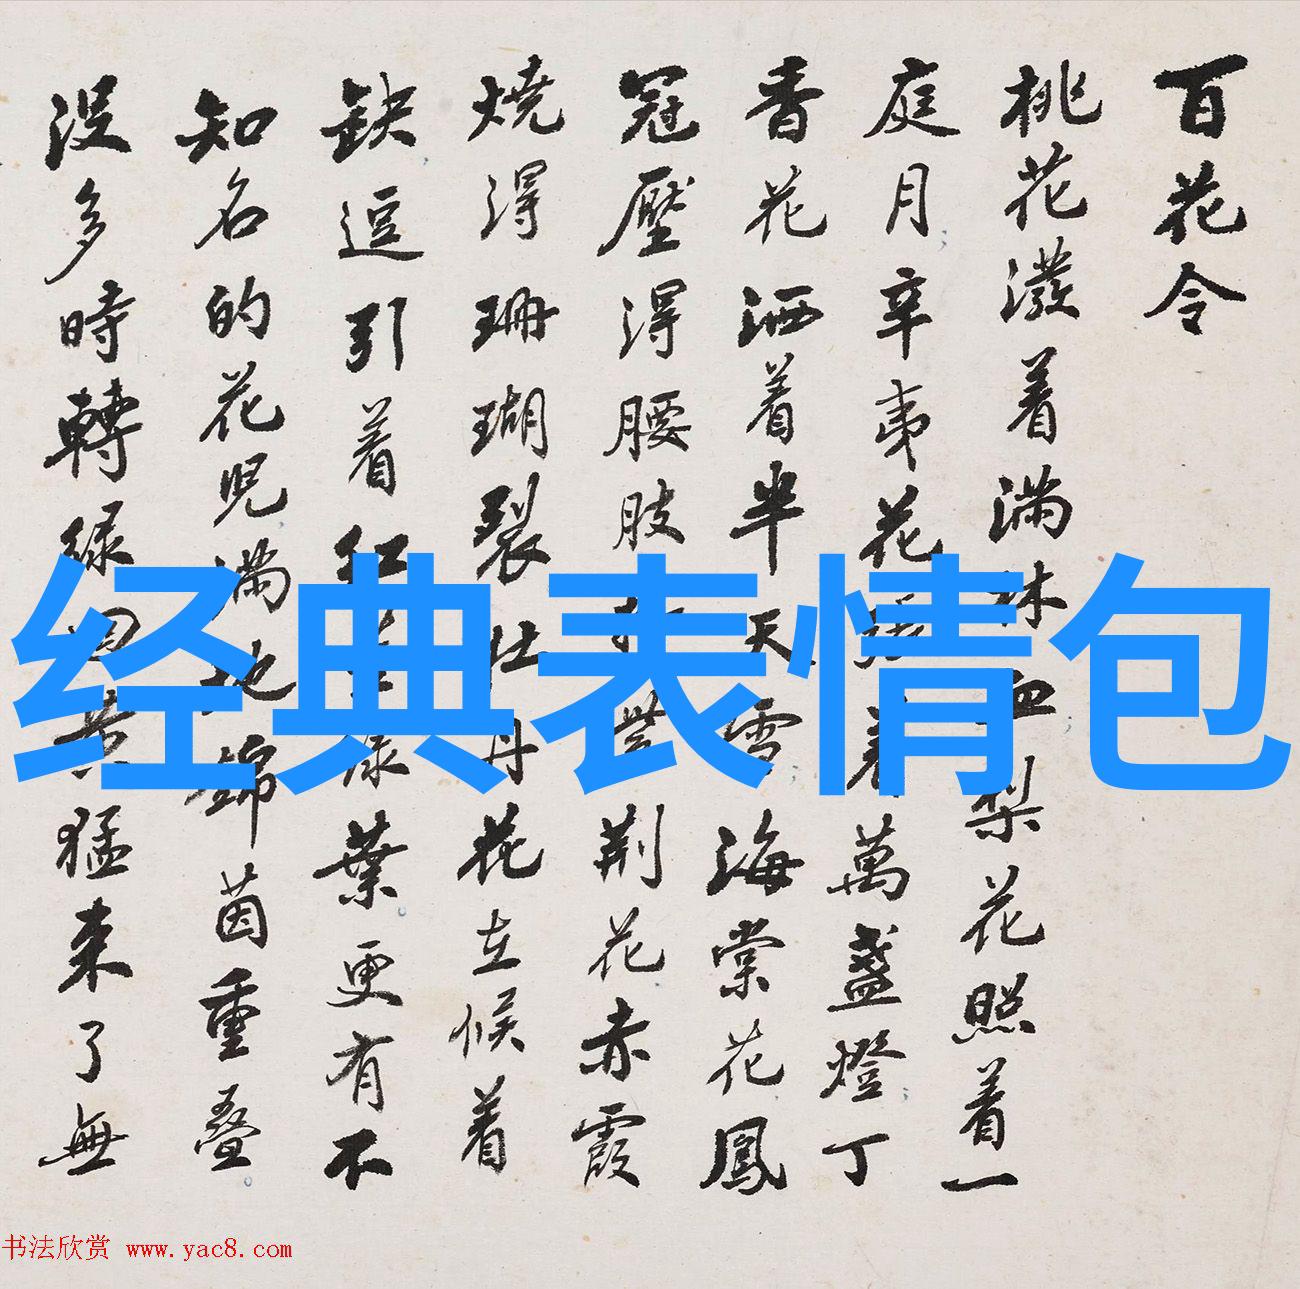 百花令
桃花潑着滿林血梨花照着一
庭月辛夷花着萬盞燈丁
香花洒着半天雪海棠花鳳
冠壓得腰肢荆花赤霞
燒得珊瑚裂牡丹花立候着
缺逗引着紅綠葉更有不
知名的花児滿地錦茵重叠
没多時轉緑回黄猛来了無
经典表情包
书法欣赏 www.yac8.com